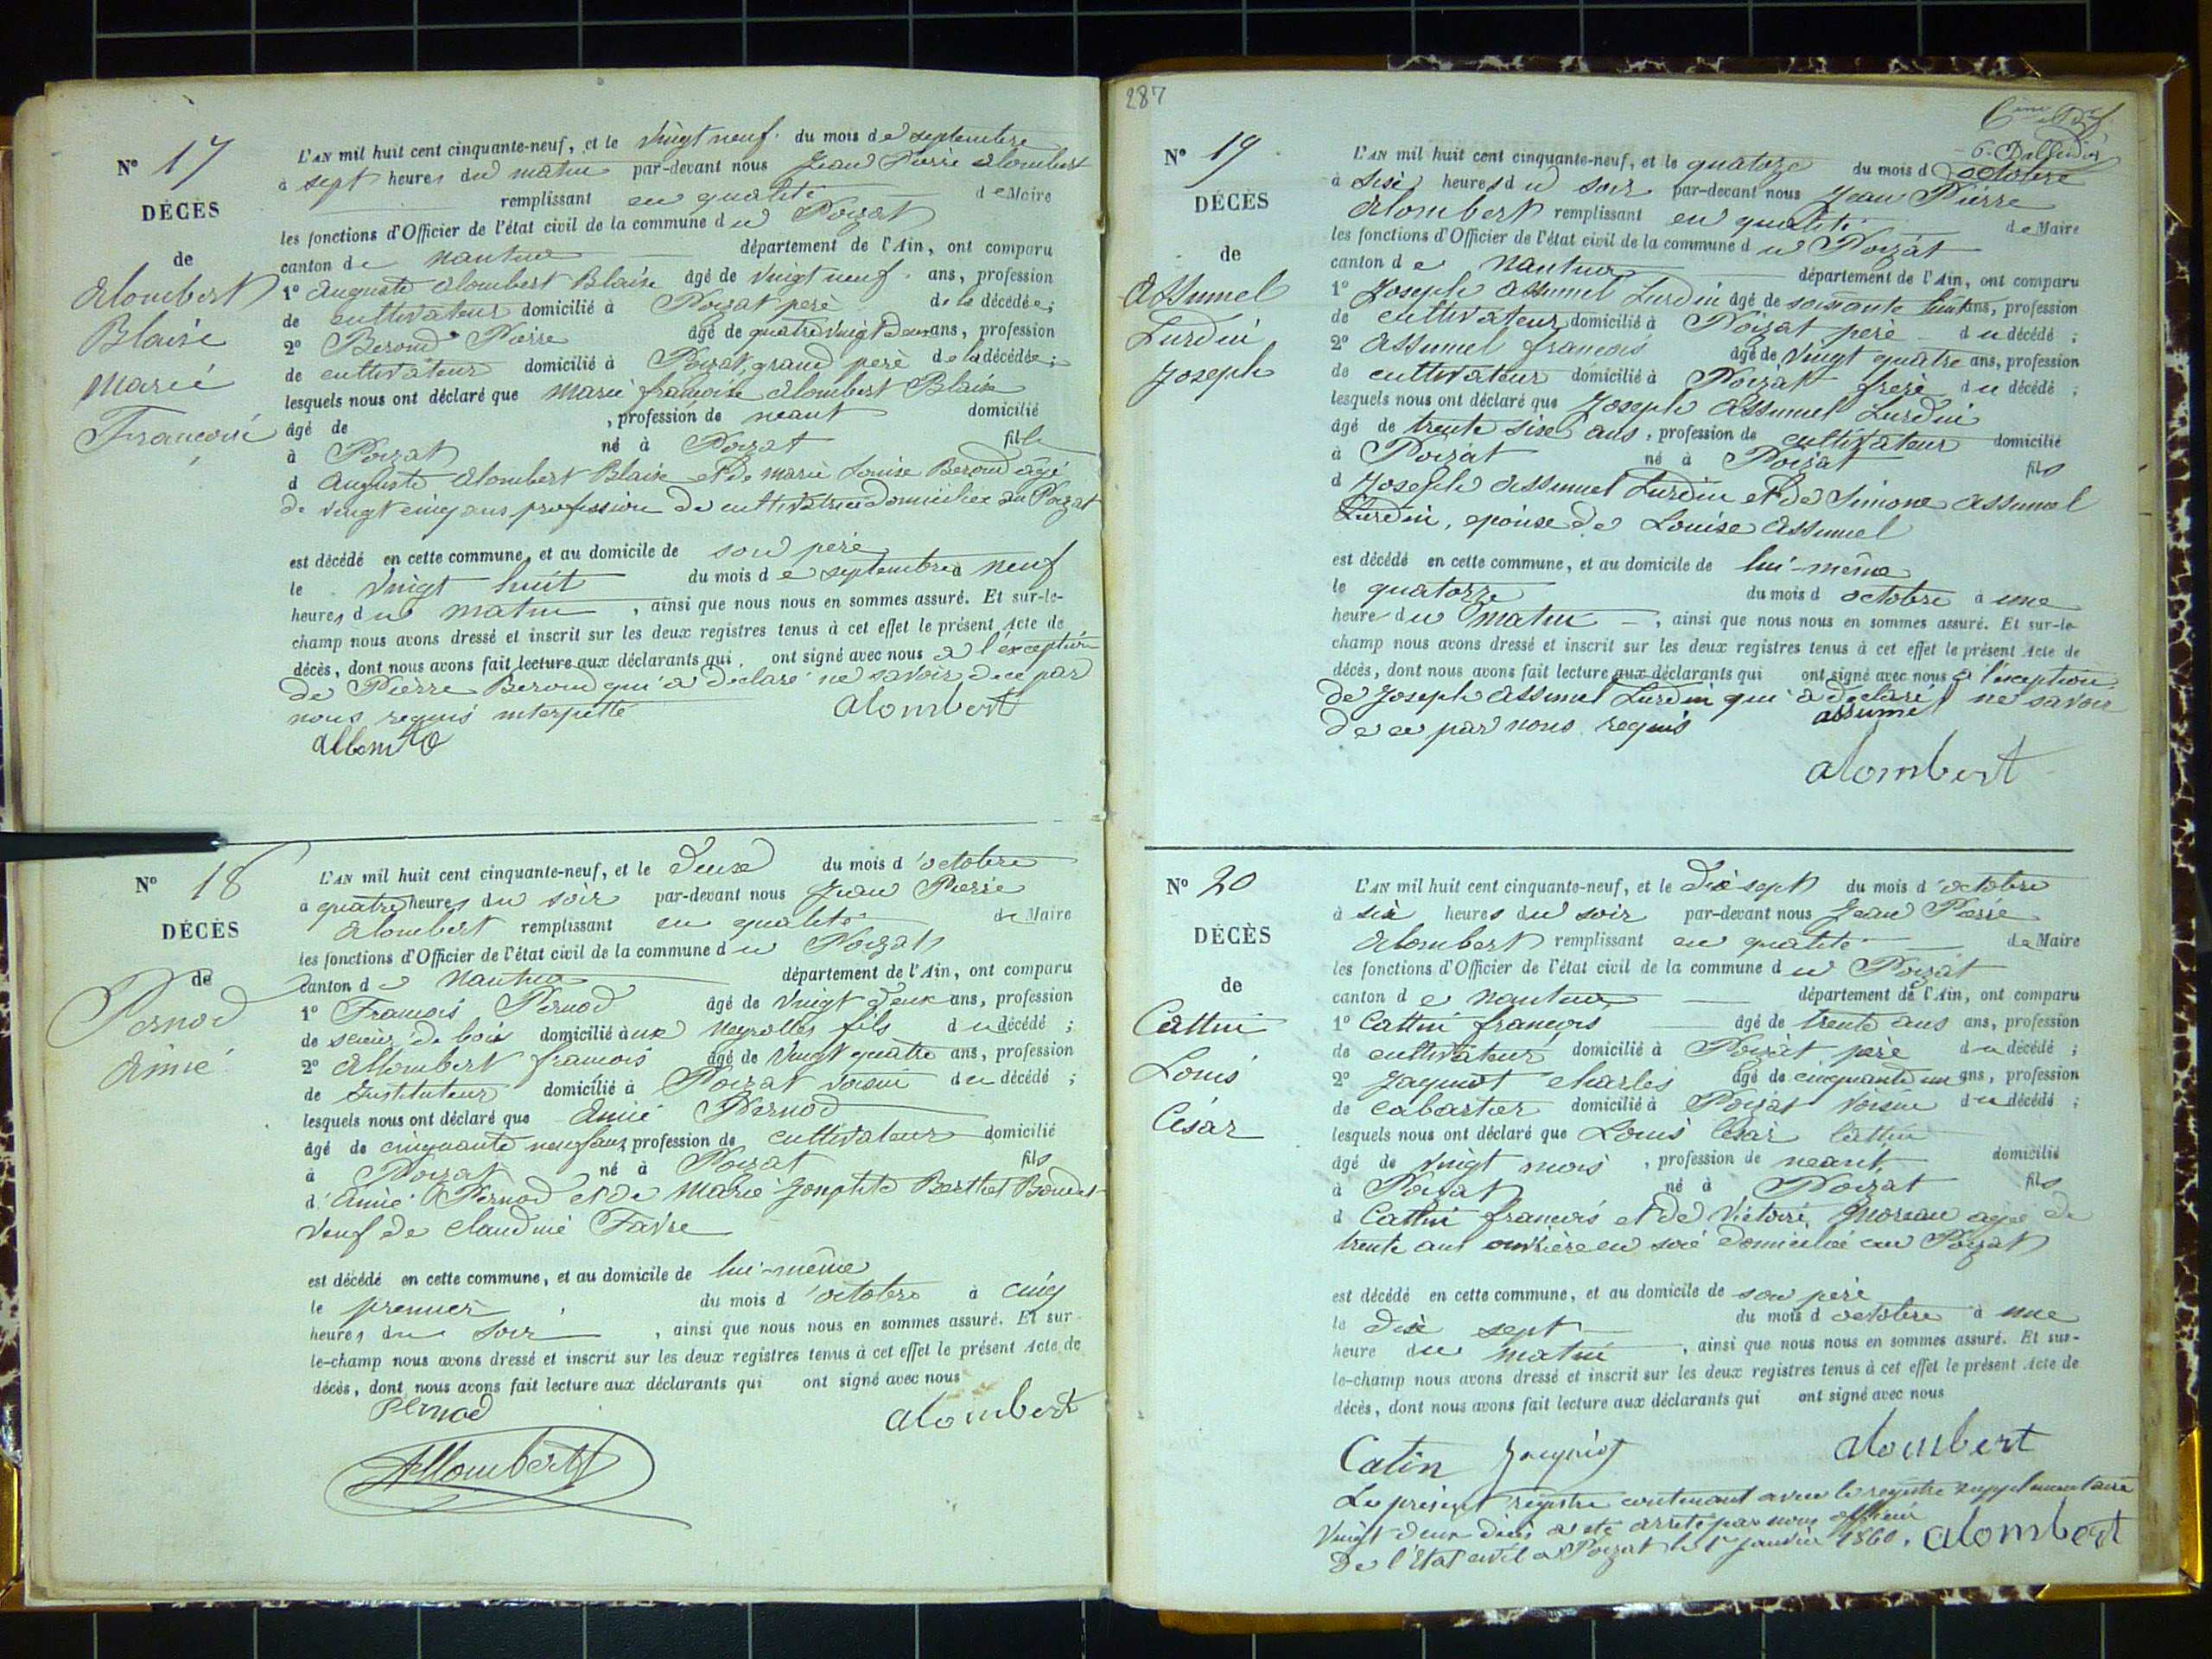 N° 17
DÉCÈS
de
Alombert
Blaise
Marie
Françoise
L'AN mil huit cent cinquante-neuf, et le vingt neuf du mois de septembre
à sept heures du matin par-devant nous Jean Pierre Alombert
remplissant en qualité de Maire
les fonctions d'Officier de l'état civil de la commune du Poizat
canton de Nantua département de l'Ain, ont comparu
1° Auguste Alombert Blaise âgé de vingt neuf ans, profession
de cultivateur domicilié à Poizat père de la décédée;
2° Beroud Pierre âgé de quatre vingt deux ans, profession
de cultivateur domicilié à Poizat, grand père de la décédée;
lesquels nous ont déclaré que Marie françoise Alombert Blaise
âgé de , profession de neant domicilié
à Poizat né à Poizat fille
d Auguste Alombert Blaise et de Marie Louise Beroud âgé
de vingt cinq ans profession de cultivatrice domiciliée au Poizat
est décédé en cette commune, et au domicile de son père
le vingt huit du mois de septembre à neuf
heures du matin , ainsi que nous nous en sommes assuré. Et sur-le-
champ nous avons dressé et inscrit sur les deux registres tenus à cet effet le présent Acte de
décès, dont nous avons fait lecture aux déclarants qui ont signé avec nous à l'exception
de Pierre Beroud qui a déclaré ne savoir de ce par
nous requis interpellé Alombert
N° 18
DÉCÈS
de
Pernod
Aimé
L'AN mil huit cent cinquante-neuf, et le deux du mois d'octobre
à quatre heures du soir par-devant nous Jean Pierre
Alombert remplissant en qualité de Maire
les fonctions d'Officier de l'état civil de la commune du Poizat
canton de Nantua département de l'Ain, ont comparu
1° François Pernod âgé de vingt deux ans, profession
de scieur de bois domicilié à aux Neyrolles fils du décédé ;
2° Allombert françois âgé de vingt quatre ans, profession
de Instituteur domicilié à Poizat voisin du décédé ;
lesquels nous ont déclaré que Aimé Pernod
âgé de cinquante neuf ans profession de cultivateur domicilié
à Poizat né à Poizat fils
d'Aimé Pernod et de Marie Josephte Berthet
veuf de Claudine Favre
est décédé en cette commune, et au domicile de lui-même
le premier du mois d'octobre à cinq
heures du soir , ainsi que nous nous en sommes assuré. Et sur-
le-champ nous avons dressé et inscrit sur les deux registres tenus à cet effet le présent Acte de
décès, dont nous avons fait lecture aux déclarants qui ont signé avec nous
Pernod Alombert
Allombert
287
N° 19
DÉCÈS
de
Assumel
Lurdin
Joseph
L'AN mil huit cent cinquante-neuf, et le quatorze du mois d octobre
à six heures du soir par-devant nous Jean Pierre
Alombert remplissant en qualité de Maire
les fonctions d'Officier de l'état civil de la commune du Poizat
canton de Nantua département de l'Ain, ont comparu
1° Joseph Assumel Lurdin âgé de soixante huit ans, profession
de cultivateur domicilié à Poizat père du décédé ;
2° Assumel françois âgé de vingt quatre ans, profession
de cultivateur domicilié à Poizat frère du décédé ;
lesquels nous ont déclaré que Joseph Assumel Lurdin
âgé de trente six ans, profession de cultivateur domicilié
à Poizat né à Poizat fils
d Joseph Assumel Lurdin et de Simone Assumel
Lurdin, epoux de Louise Assumel
est décédé en cette commune, et au domicile de lui-même
le quatorze du mois d octobre à une
heure du matin , ainsi que nous nous en sommes assuré. Et sur-le-
champ nous avons dressé et inscrit sur les deux registres tenus à cet effet le présent Acte de
décès, dont nous avons fait lecture aux déclarants qui ont signé avec nous à l'exception
de Joseph Assumel Lurdin qui a déclaré ne savoir
de ce par nous requis assumel
Alombert
N° 20
DÉCÈS
de
Cattin
Louis
César
L'AN mil huit cent cinquante-neuf, et le dix sept du mois d'octobre
à six heures du soir par-devant nous Jean Pierre
Alombert remplissant en qualité de Maire
les fonctions d'Officier de l'état civil de la commune du Poizat
canton de Nantua département de l'Ain, ont comparu
1° Cattin françois âgé de trente ans ans, profession
de cultivateur domicilié à Poizat père du décédé ;
2° Jaquiot Charles âgé de cinquante un ans, profession
de cabartier domicilié à Poizat voisin du décédé ;
lesquels nous ont déclaré que Louis César Cattin
âgé de vingt mois , profession de neant domicilié
à Poizat né à Poizat fils
d Cattin françois et de Victoire Moreau agée de
trente ans ouvrière en soie domiciliée au Poizat
est décédé en cette commune, et au domicile de son père
le dix sept du mois d octobre à une
heure du matin , ainsi que nous nous en sommes assuré. Et sur-
le-champ nous avons dressé et inscrit sur les deux registres tenus à cet effet le présent Acte de
décès, dont nous avons fait lecture aux déclarants qui ont signé avec nous
Catin Jaquiot Alombert
Le présent registre contenant avec le registre supplementaire
vingt deux décès a été arrêté par nous officier
de l'Etat civil à Poizat le 1er janvier 1860. Alombert